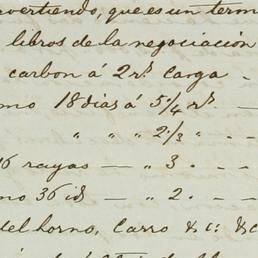 vertiendo, que es un term
libros de la negociación
carbon á 2 rs. Carga -
mo 18 dias á 5 1/4 rs. -
" " " 2 1/3 " - -
6 rayas — " 3 - -
mo 36 id — " 2 - - -
del horno, Carro &c: &c